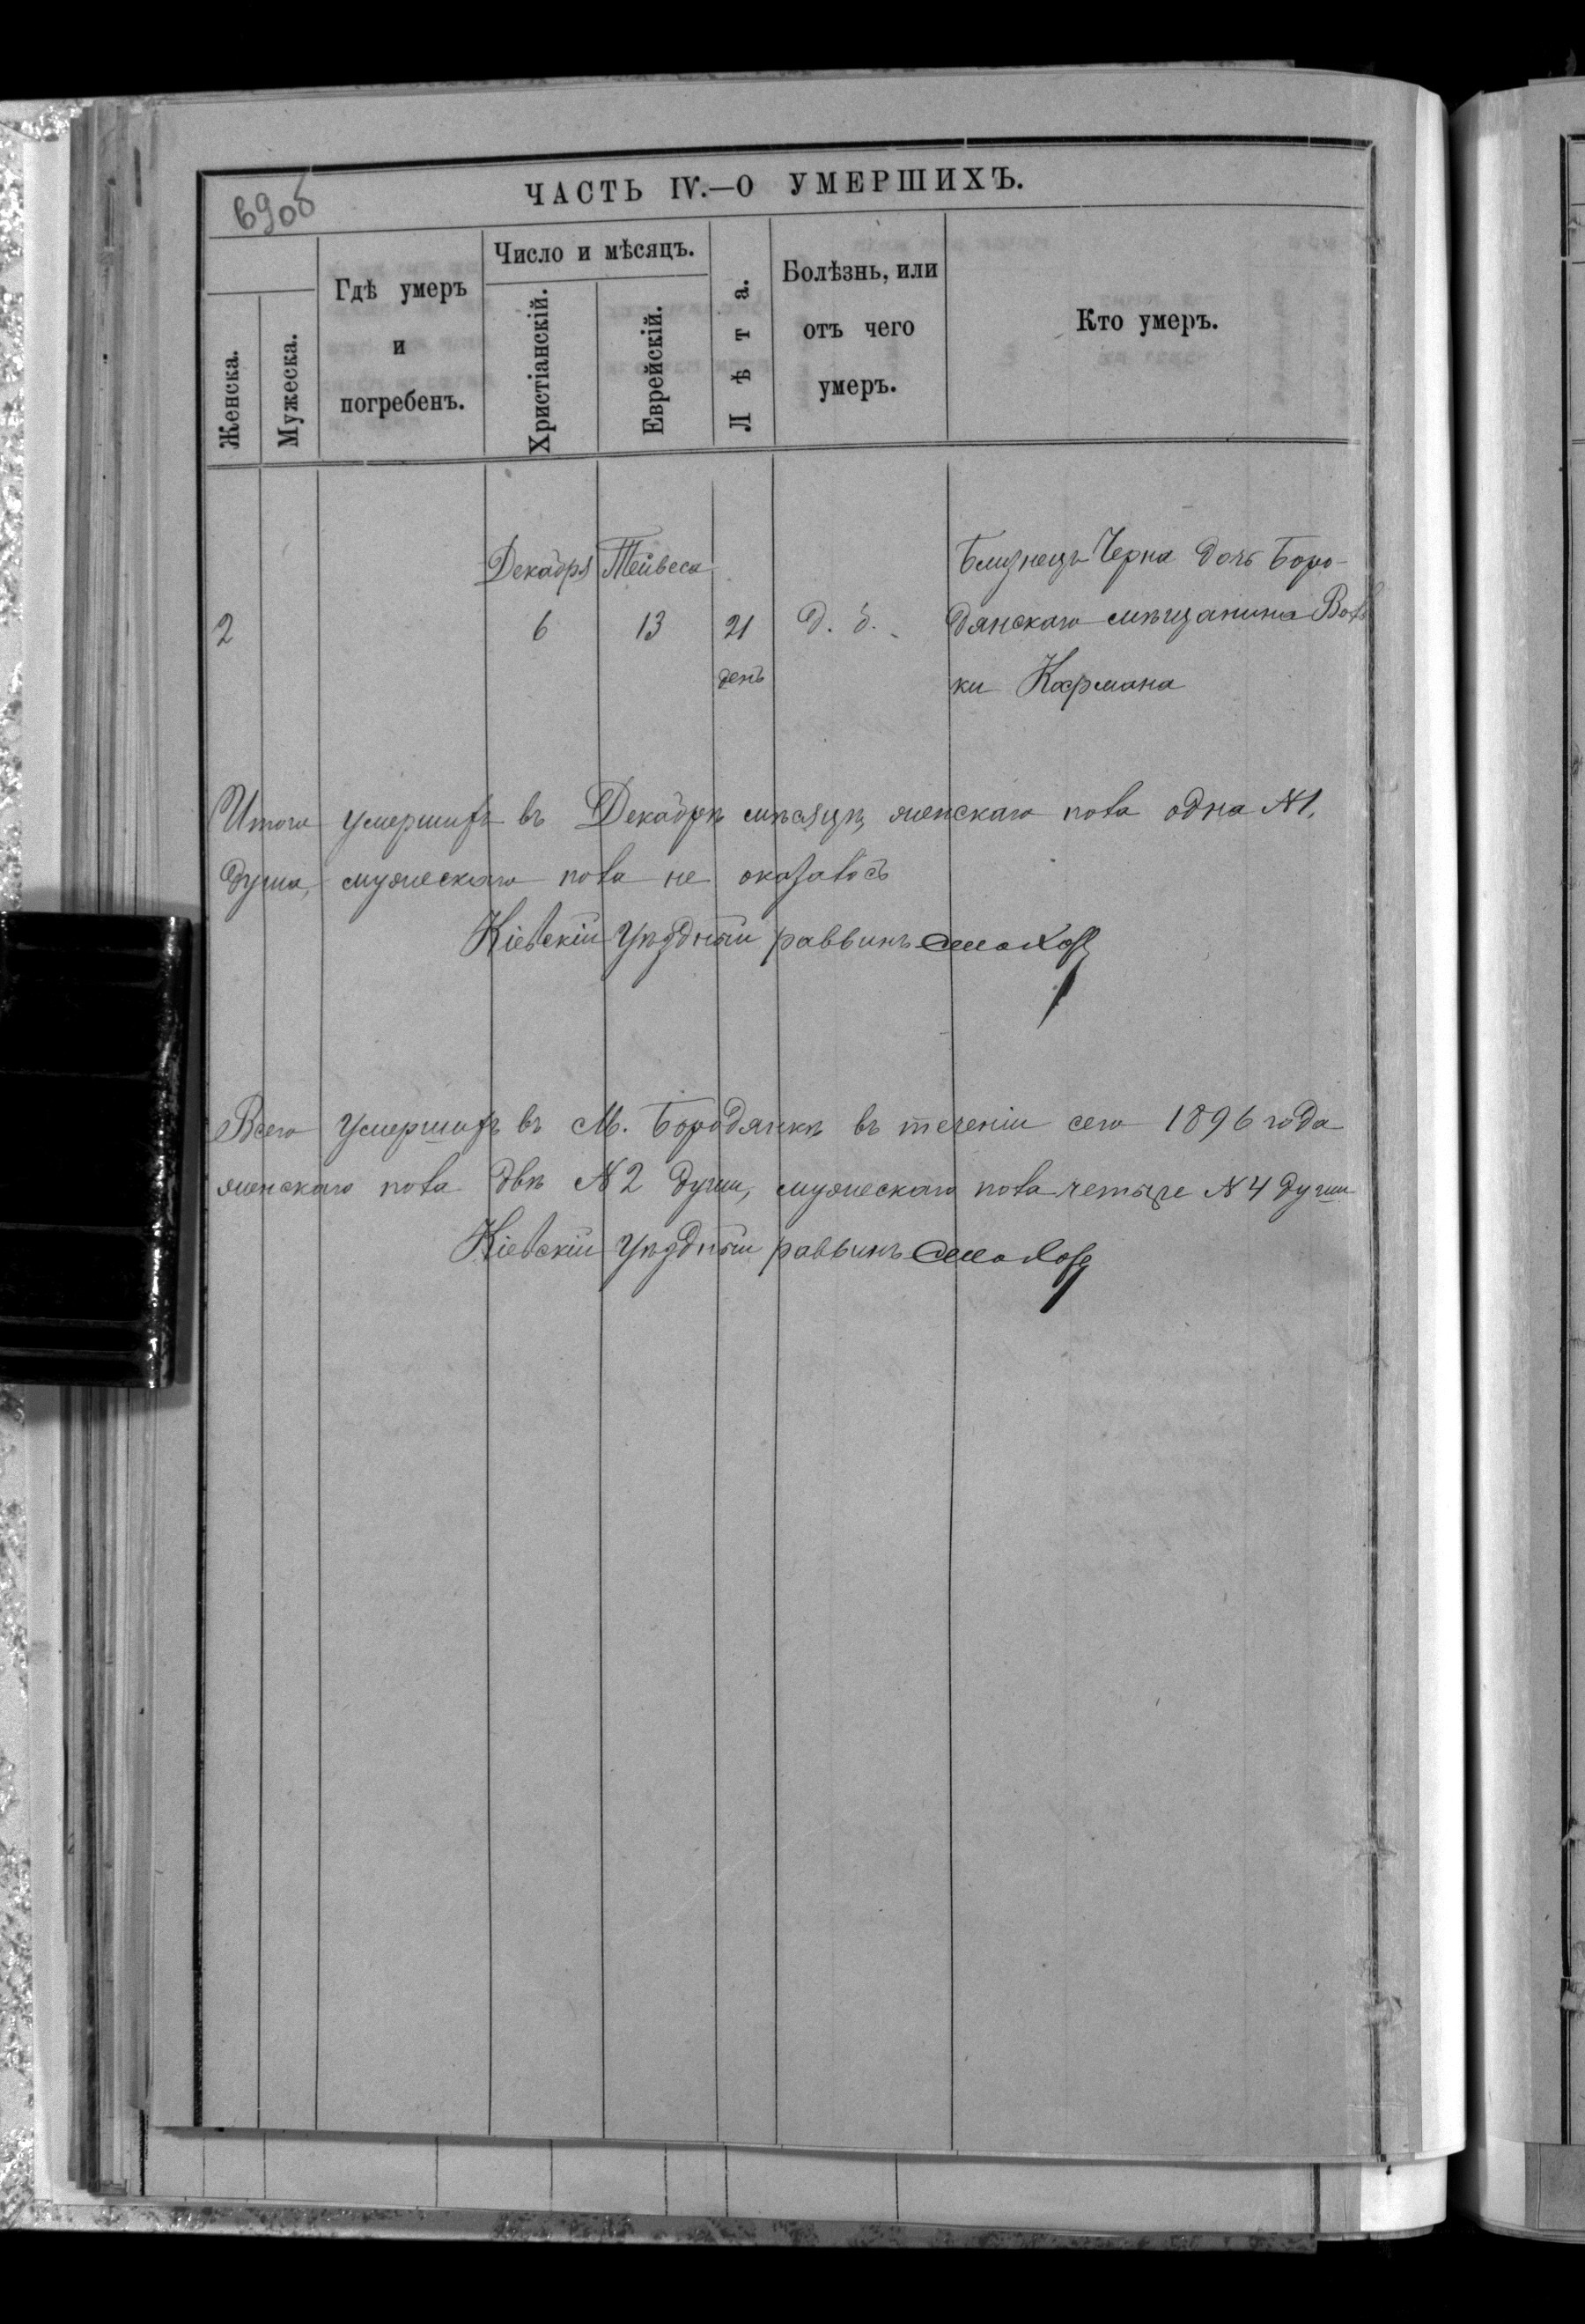 69об
ЧАСТЬ IV.—О УМЕРШИХЪ.
Женска.
Мужеска.
Гдѣ умеръ и погребенъ.
Число и мѣсяцъ.
Христіанскій.
Еврейскій.
Лѣта.
Болѣзнь, или отъ чего умеръ.
Кто умеръ.
Декабря Тейвеса Близнецъ Черна дочь Боро-
2 6 13 21 д. б. дянскаго мѣщанина Воль
день ки Кармана
Итого умершихъ въ Декабрѣ мѣсяцѣ, женскаго пола одна №1,
душа, мужескаго пола не оказалось
Кіевскій Уѣздный раввинъ
Всего умершихъ въ М. Бородянкѣ въ теченіи сего 1896 года
женскаго пола двѣ №2 души, мужескаго пола четыре №4 души
Кіевскій Уѣздный раввинъ